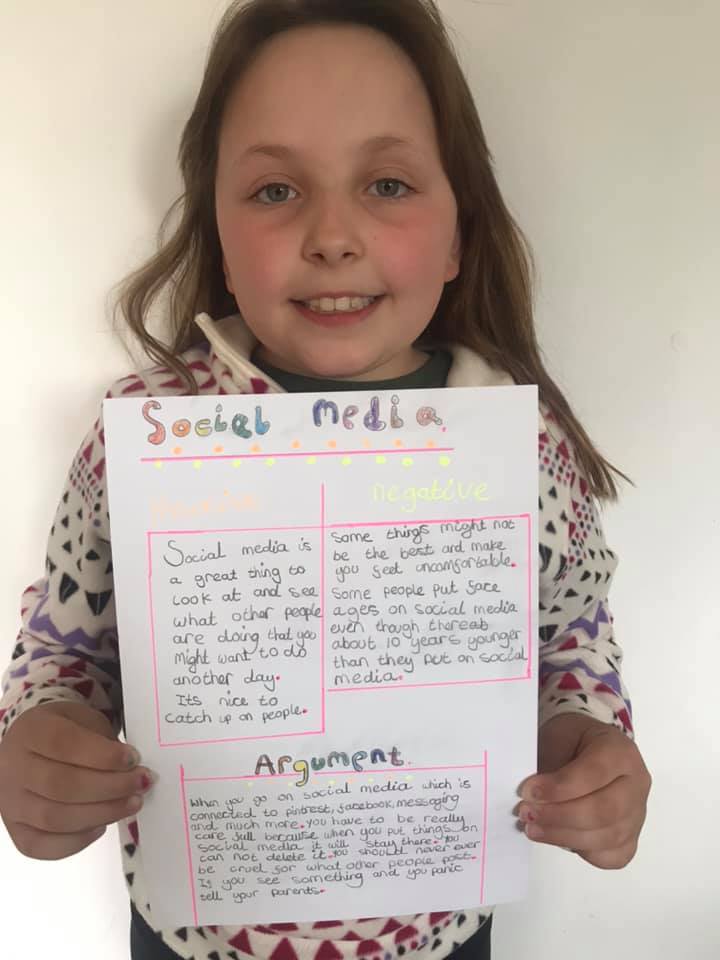 Social media.
Positive
negative
Social media is
a great thing to
look at and see
what other people
are doing that you
might want to do
another day.
Its nice to
catch up on people.
Some things might not
be the best and make
you feel uncomfortable.
Some people put face
ages on social media
even though thereab
about 10 years younger
than they put on social
media.
Argument.
When you go on social media which is
connected to pintrest, facebook, messaging
and much more. you have to be really
care full because when you put things on
social media it will stay there. you
can not delete it. you should never ever
be cruel for what other people post.
If you see something and you panic
tell your parents.